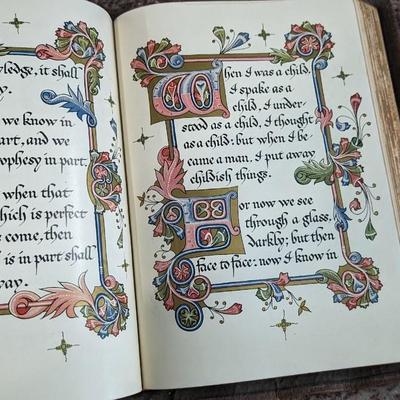 ledge, it shall
ay.
we know in
art, and we
ophesy in part.
when that
hich is perfect
come, then
is in part shall
way.
When I was a child,
I spake as a
child, I under-
stood as a child, I thought
as a child: but when I be-
came a man, I put away
childish things.
For now we see
through a glass,
Darkly; but then
face to face: now I know in